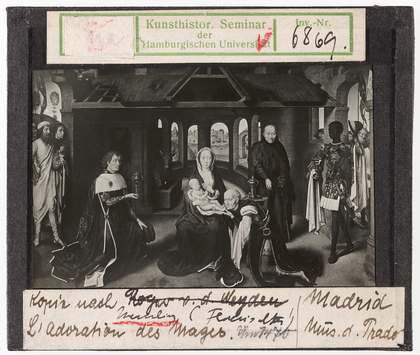 Kunsthistor. Seminar
der
Hamburgischen Universität
Inv.-Nr.
6869.
Kopie nach Roger v. d. Weyden
Memling
L'adoration des Mages.
Madrid
Mus. d. Prado